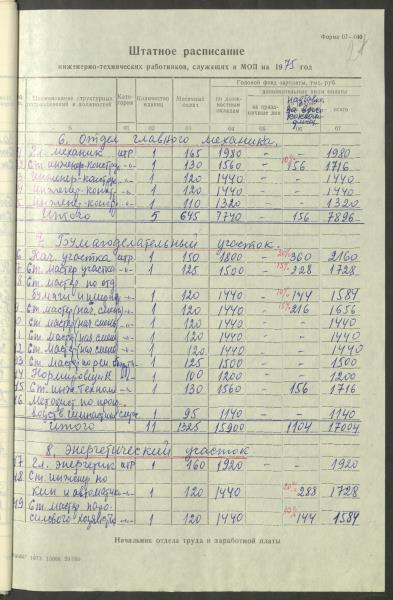 Форма 07—040
Штатное расписание
инженерно-технических работников, служащих и МОП на 1975 год
Наименование структурных подразделений и должностей Категория Количество единиц Месячный оклад Годовой фонд зарплаты, тыс. руб.
по должностным окладам дополнительные виды оплаты всего
на праздничные дни надбавка
01 02 03 04 05 06 07
6. Отдел главного механика.
1 Гл. механик итр 1 165 1980 - 1980
2 Ст. инженер-констр -"- 1 130 1560 - 10% 156 1716
3 Инженер-констр -"- 1 120 1440 - - 1440
4 Инженер-констр -"- 1 120 1440 - - 1440
5 Инженер-констр -"- 1 110 1320 - - 1320
Итого 5 645 7740 - 156 7896
7. Бумагоделательный участок.
6 Нач. участка итр. 1 150 1800 - 20% 360 2160
7 Ст. мастер участка -"- 1 125 1500 - 15% 228 1728
8 Ст. мастер по отд.
бумаги -"- 1 120 1440 - 10% 144 1584
9 Ст. мастер/нач. смены -"- 1 120 1440 - 15% 216 1656
10 Ст. мастер/нач. смены -"- 1 120 1440 - - 1440
11 Ст. мастер/нач. смены -"- 1 120 1440 - - 1440
12 Ст. мастер/нач. смены -"- 1 120 1440 - - 1440
13 Ст. мастер по рем. -"- 1 125 1500 - - 1500
14 Нормировщик 1 100 1200 - - 1200
15 Ст. инж. технол -"- 1 130 1560 156 1716
16 Методист по произ-
водств гимнастике служ. 1 95 1140 - - 1140
Итого 11 1325 15900 1104 17004
8. Энергетический участок
17 Гл. энергетик итр 1 160 1920 - - 1920
18 Ст. инженер по
кип и автоматике -"- 1 120 1440 20% 288 1728
19 Ст. мастер паро-
силового хозяйства -"- 1 120 1440 10% 144 1584
Начальник отдела труда и заработной платы